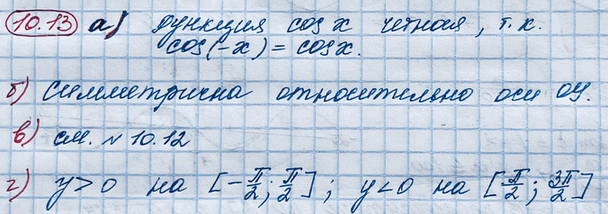 10.13 а) функция cos x четная, т.к.
cos(-x) = cos x.
б) симметрична относительно оси оу.
в) см. № 10.12
г) y>0 на [-π/2; π/2]; y<0 на [π/2; 3π/2]